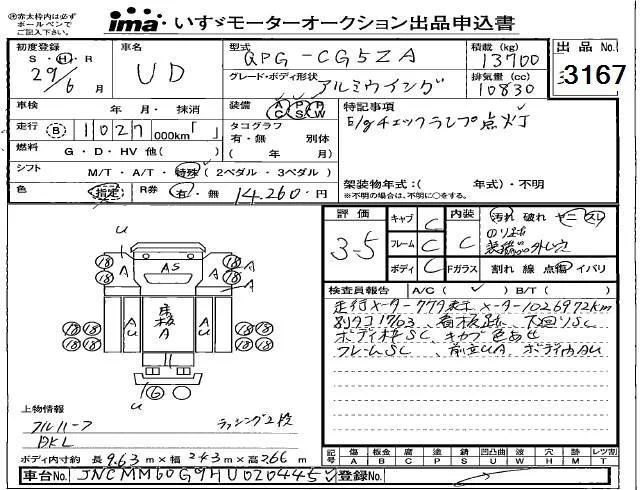 ※赤太枠内は必ず
ボールペンで
ご記入下さい。
ima いすゞモーターオークション出品申込書
初度登録 車名 型式 積載(kg) 出品No.
S・H・R UD QPG-CG5ZA 13700
29年6月 グレード・ボディ形状 アルミウイング 排気量(cc) 10830 3167
車検 年 月・抹消 装備 A/C P/S P/W R/W 特記事項
走行 B 1027 000km「 」 タコグラフ 有・無 別体 E/gチェックランプ点灯
燃料 G・D・HV 他( ) ( 年 月)
シフト M/T・A/T・特殊(2ペダル・3ペダル) 架装物年式:( 年式)・不明
色 指定 R券 有・無 14,260円 ※不明の場合は、不明に○をする。
評価 3-5 キャブ C 内装 C 汚れ 破れ ヤニ スレ
フレーム C
ボディ C Fガラス 割れ 線 点傷 イバリ
検査員報告 A/C( ✓ ) B/T( )
走行メーター779表示 メーター1026972km
別タコ1703、看板跡、下廻りSC
ボディ枠SC、キャブ色あせ
フレームSC、前立UA、ボディ内AU
u
18 A AS A 18
18 18
A A
18 18 A u 床板 A A u 18 18
18 18 18 18
u 6
上物情報
フルハーフ ラッシング2段
DKL
ボディ内寸約 長 9.63 m×幅 2.43 m×高 2.66 m
記号 傷 板金 腐 塗 錆 凹凸曲 要交換 穴 跡 レツ割
A B C P S U W H M T
車台No. JNCMM60G9HU020445 登録No.